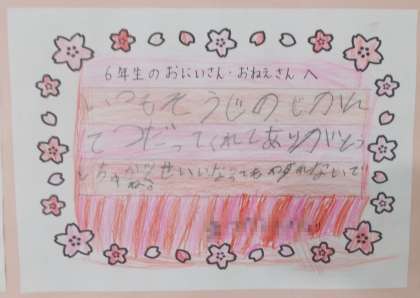 6年生のおにいさん・おねえさんへ
いつもそうじのじかん
てつだってくれてありがとう
ちゅうがくせいになってもわすれないで
ね。